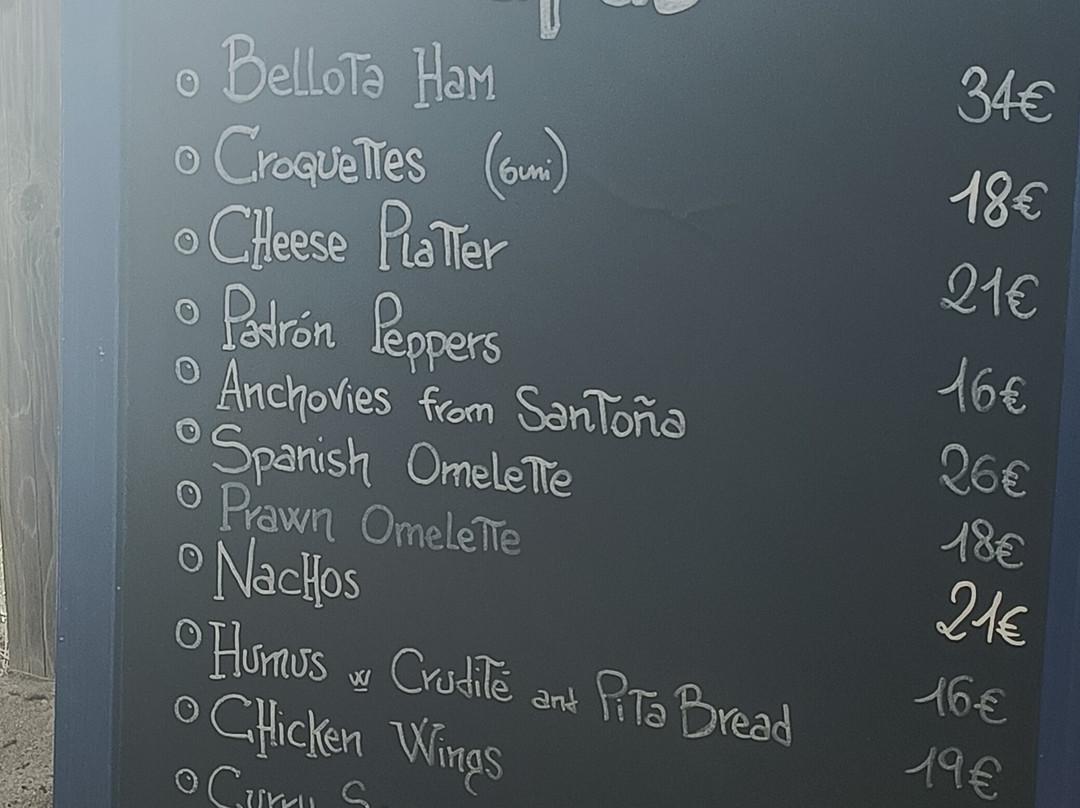 Bellota Ham 34€
Croquettes (6uni) 18€
Cheese Platter 21€
Padrón Peppers 16€
Anchovies from Santoña 26€
Spanish Omelette 18€
Prawn Omelette 21€
Nachos 16€
Humus w Crudité and Pita Bread 19€
Chicken Wings
Curry